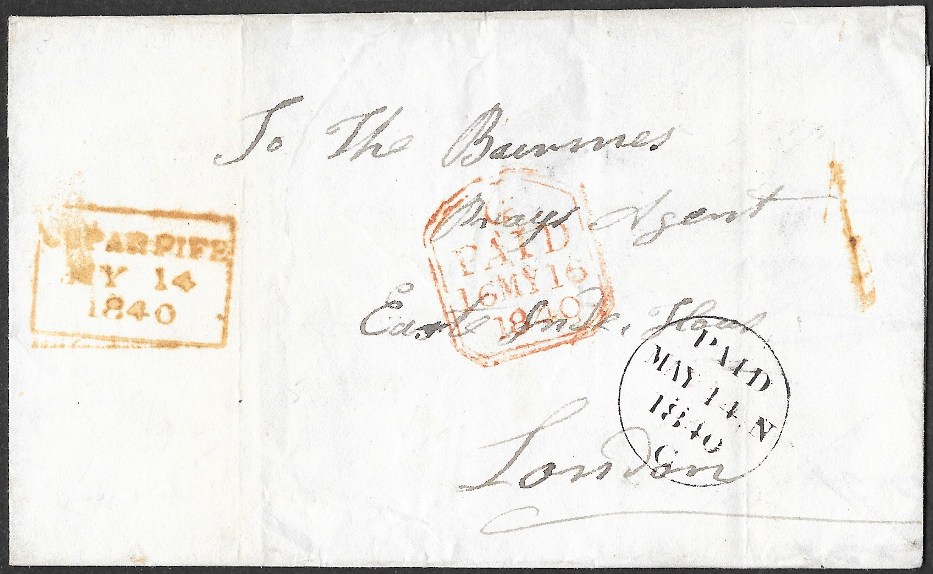 To The Burmes
Prize Agent
East India House
London
CUPAR FIFE
MY 14
1840
PAID
16 MY 16
1840
PAID
MAY 14 N
1840
C
1